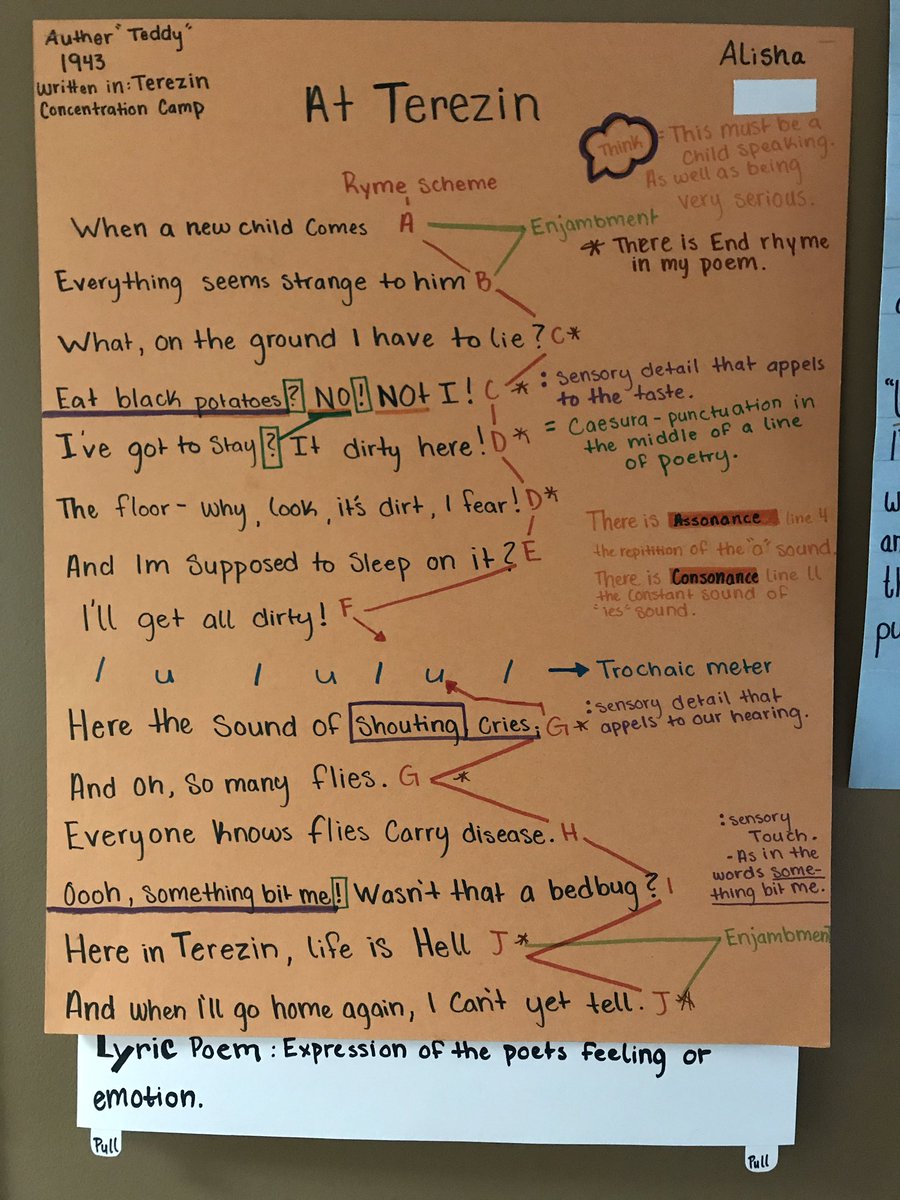 Auther "Teddy"
1943
Written in: Terezin
Concentration Camp
Alisha
At Terezin
Think = This must be a
Child speaking.
As well as being
very serious.
Ryme scheme
When a new child Comes A
Enjambment
* There is End rhyme
in my poem.
Everything seems strange to him B
What, on the ground I have to lie? C*
Eat black potatoes? NO! NOt I! C *
: sensory detail that appels
to the taste.
I've got to Stay? It dirty here! D*
= Caesura - punctuation in
the middle of a line
of poetry.
The floor - why, look, it's dirt, I fear! D*
There is Assonance line 4
the repitition of the "o" sound.
And Im Supposed to Sleep on it? E
There is Consonance line 11
the Constant sound of
"ies" sound.
I'll get all dirty! F
/ u / u / u / → Trochaic meter
Here the Sound of Shouting Cries; G *
: sensory detail that
appels to our hearing.
And Oh, So many flies. G *
Everyone Knows flies Carry disease. H
: sensory
Touch.
- As in the
words some-
thing bit me.
Oooh, Something bit me! Wasn't that a bedbug? I
Here in Terezin, life is Hell J *
Enjambment
And when I'll go home again, I Can't yet tell. J *
Lyric Poem : Expression of the poets feeling or
emotion.
Pull
Pull